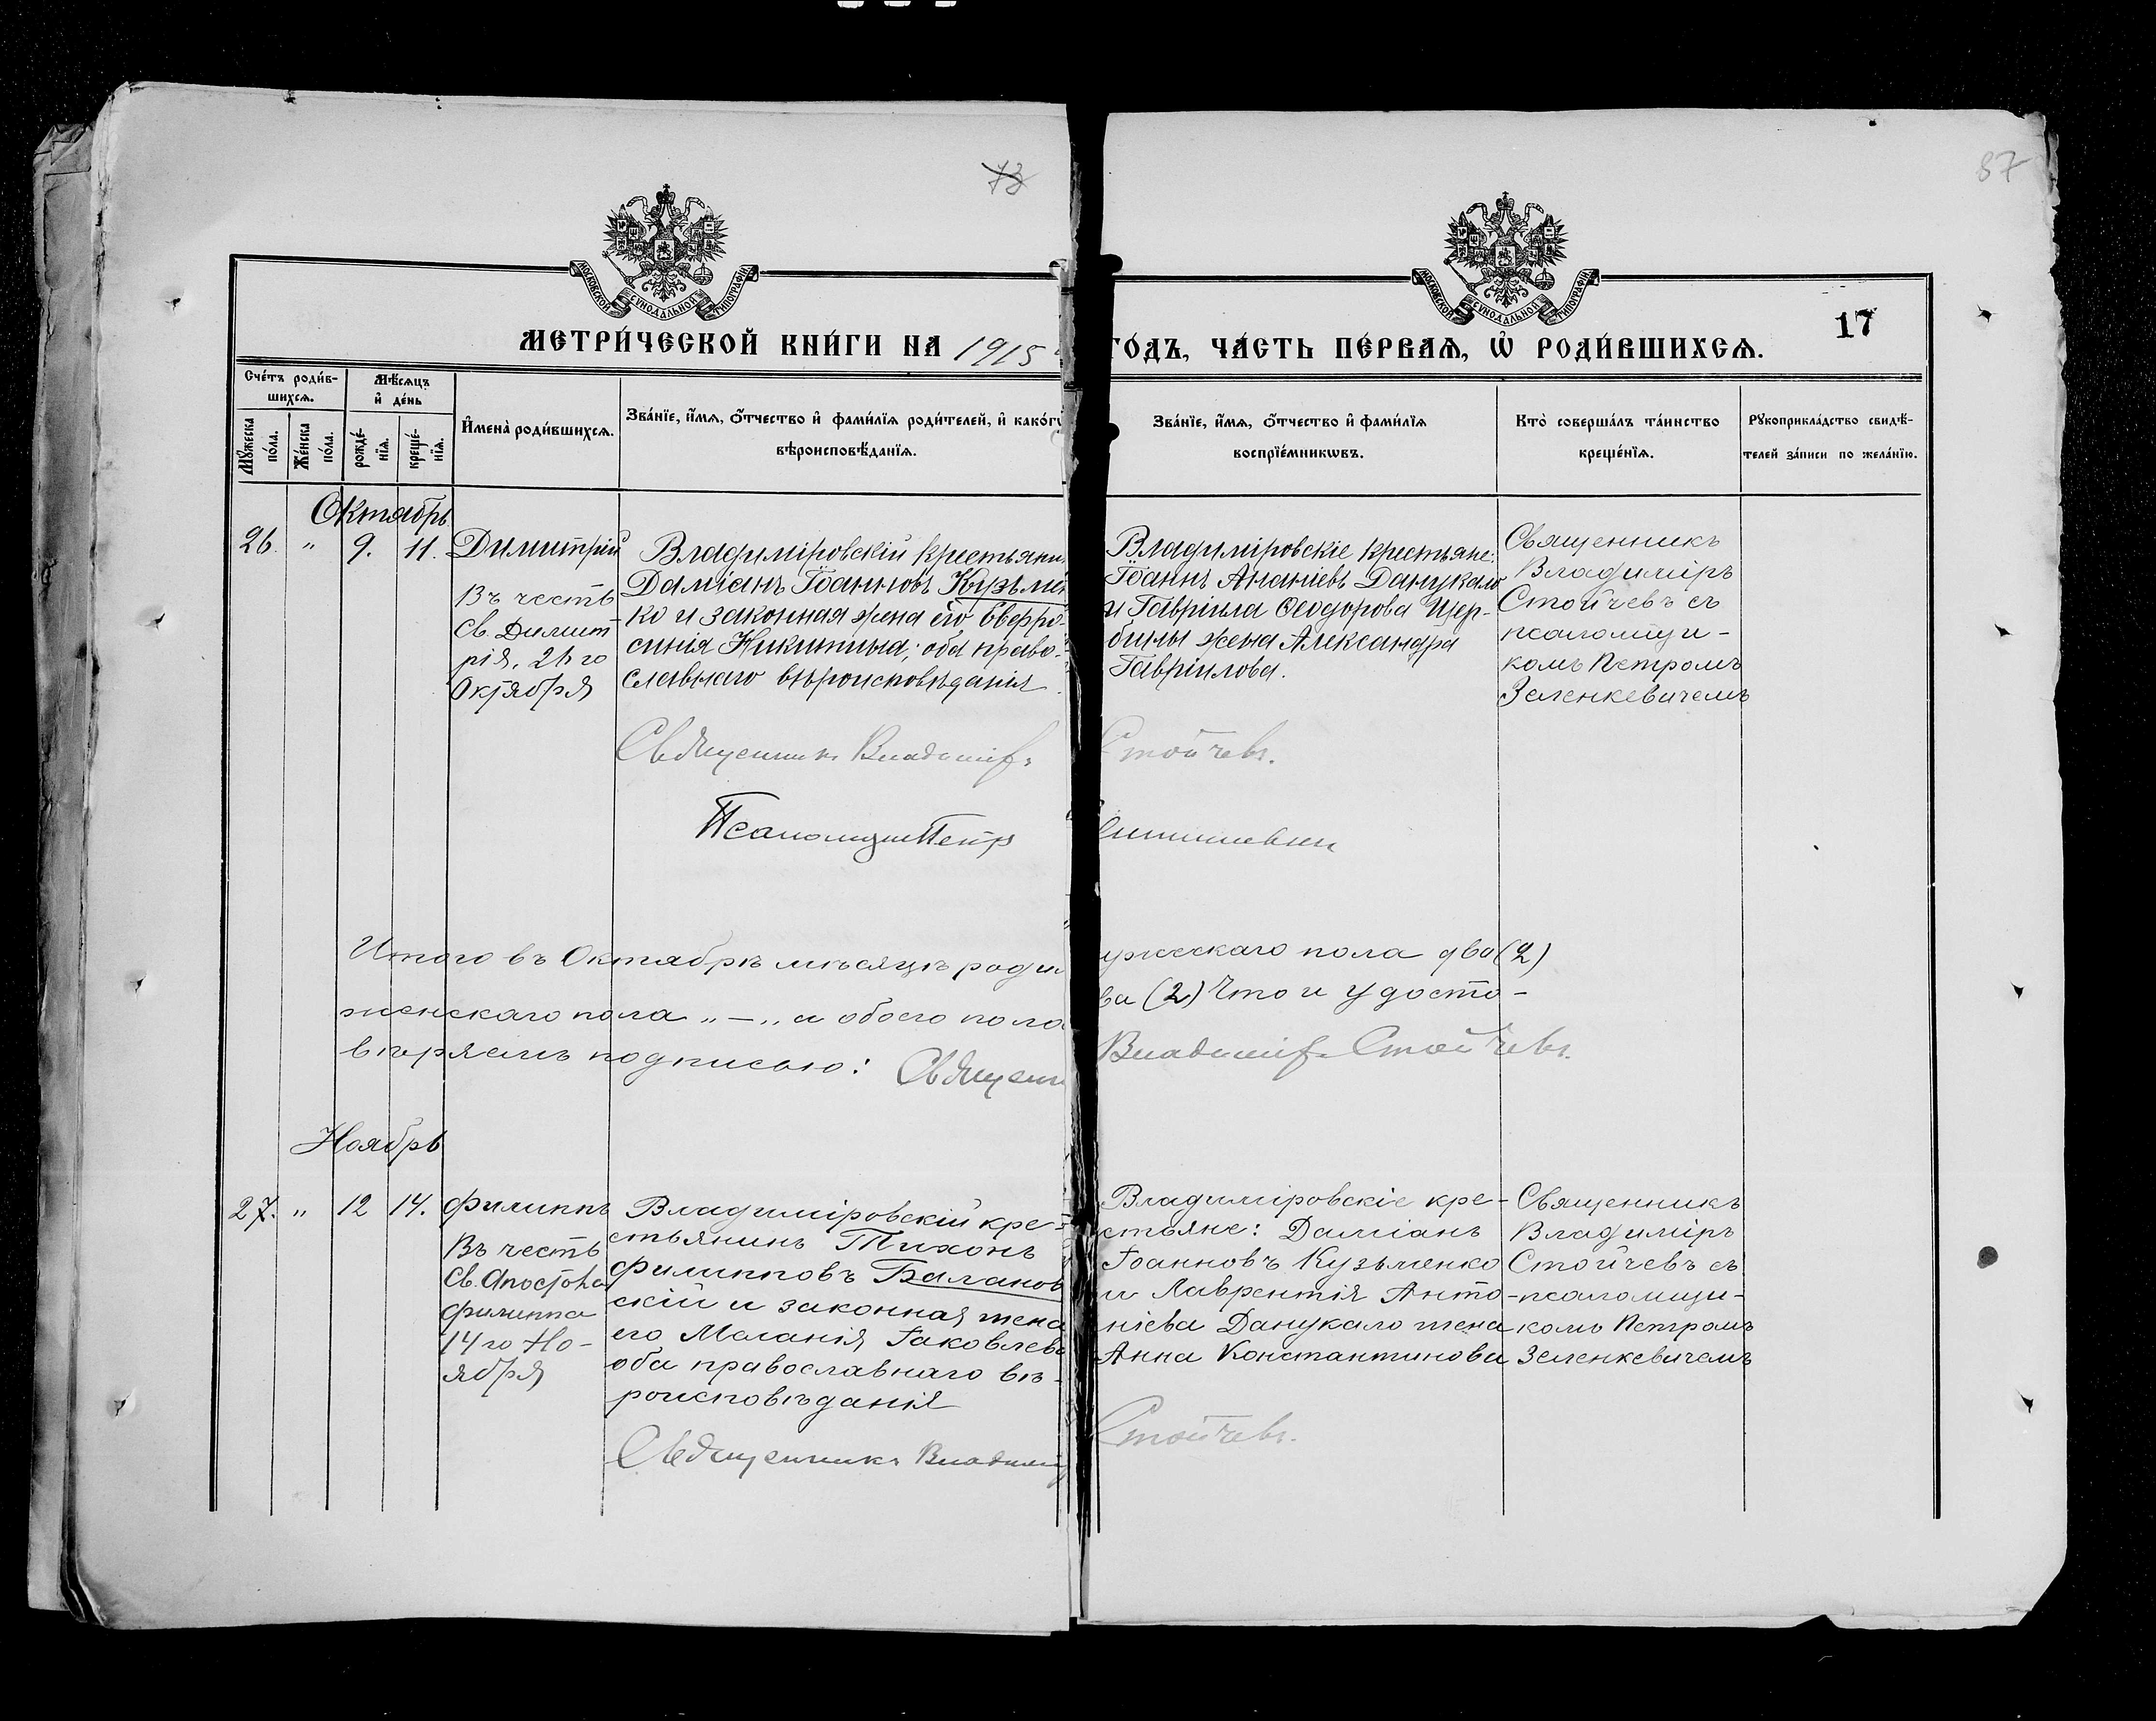 73
87
МОСКОВСКОЙ СѴНОДАЛЬНОЙ ТИПОГРАФІИ
МОСКОВСКОЙ СѴНОДАЛЬНОЙ ТИПОГРАФІИ
17
МЕТРИ́ЧЕСКОЙ КНИ́ГИ НА 1915
ГО́ДЪ, ЧА́СТЬ ПЕ́РВАЯ, Ѡ҆ РОДИ́ВШИХСЯ.
Сче́тъ роди́в-
шихся.
Мѣ́сяцъ
и҆ де́нь
Мꙋ́жеска
по́ла.
Же́нска
по́ла.
рожде́-
нїя.
креще́-
нїя.
И҆мена̀ роди́вшихся.
Зва́нїе, и҆́мя, ѻ҆́тчество и҆ фами́лїя роди́телей, и҆ како́гѡ
вѣроисповѣ́данїя.
Зва́нїе, и҆́мя, ѻ҆́тчество и҆ фами́лїя
воспрїе́мникѡвъ.
Кто̀ соверша́лъ та́инство
креще́нїя.
Рꙋкоприкла́дство свидѣ́-
телей за́писи по жела́нїю.
Октябрь
26. „ 9. 11. Димитрій
Въ честь
Св. Димит
рія, 26 го
Октября
Владиміровскій крестьянин
Даміанъ Іоанновъ Кузьмен
ко и законная жена его Евфро-
синія Никитина; оба право-
славнаго вѣроисповѣданія.
Владиміровскіе крестьяне:
Іоаннъ Ананіевъ Данукало
и Гавріила Ѳеодорова Щер-
бины жена Александра
Гавріилова.
Священникъ
Владиміръ
Стойчевъ съ
псаломщи-
комъ Петромъ
Зеленкевичемъ
Священникъ Владиміръ
Стойчевъ.
Псаломщик Петр
Итого въ Октябрѣ мѣсяцѣ роди
ужескаго пола два (2)
женскаго пола „—„ а обоего пола
ва (2) Что и удосто-
вѣряемъ подписью: Священ
Владиміръ Стойчевъ.
Ноябрь
27. „ 12 14. Филиппъ
Въ честь
Св. Апостола
Филиппа
14 го Но-
ября
Владиміровскій кре-
стьянинъ Тихонъ
Филипповъ Баланов
скій и законная жена
его Маланія Іаковлева
оба православнаго вѣ-
роисповѣданія
Владиміровскіе кре-
стьяне: Даміанъ
Іоанновъ Кузьменко
и Лаврентія Анто-
ніева Данукало жена
Анна Константинова
Священникъ
Владиміръ
Стойчевъ съ
псаломщи-
комъ Петромъ
Зеленкевичемъ
Священникъ Владимі
Стойчевъ.